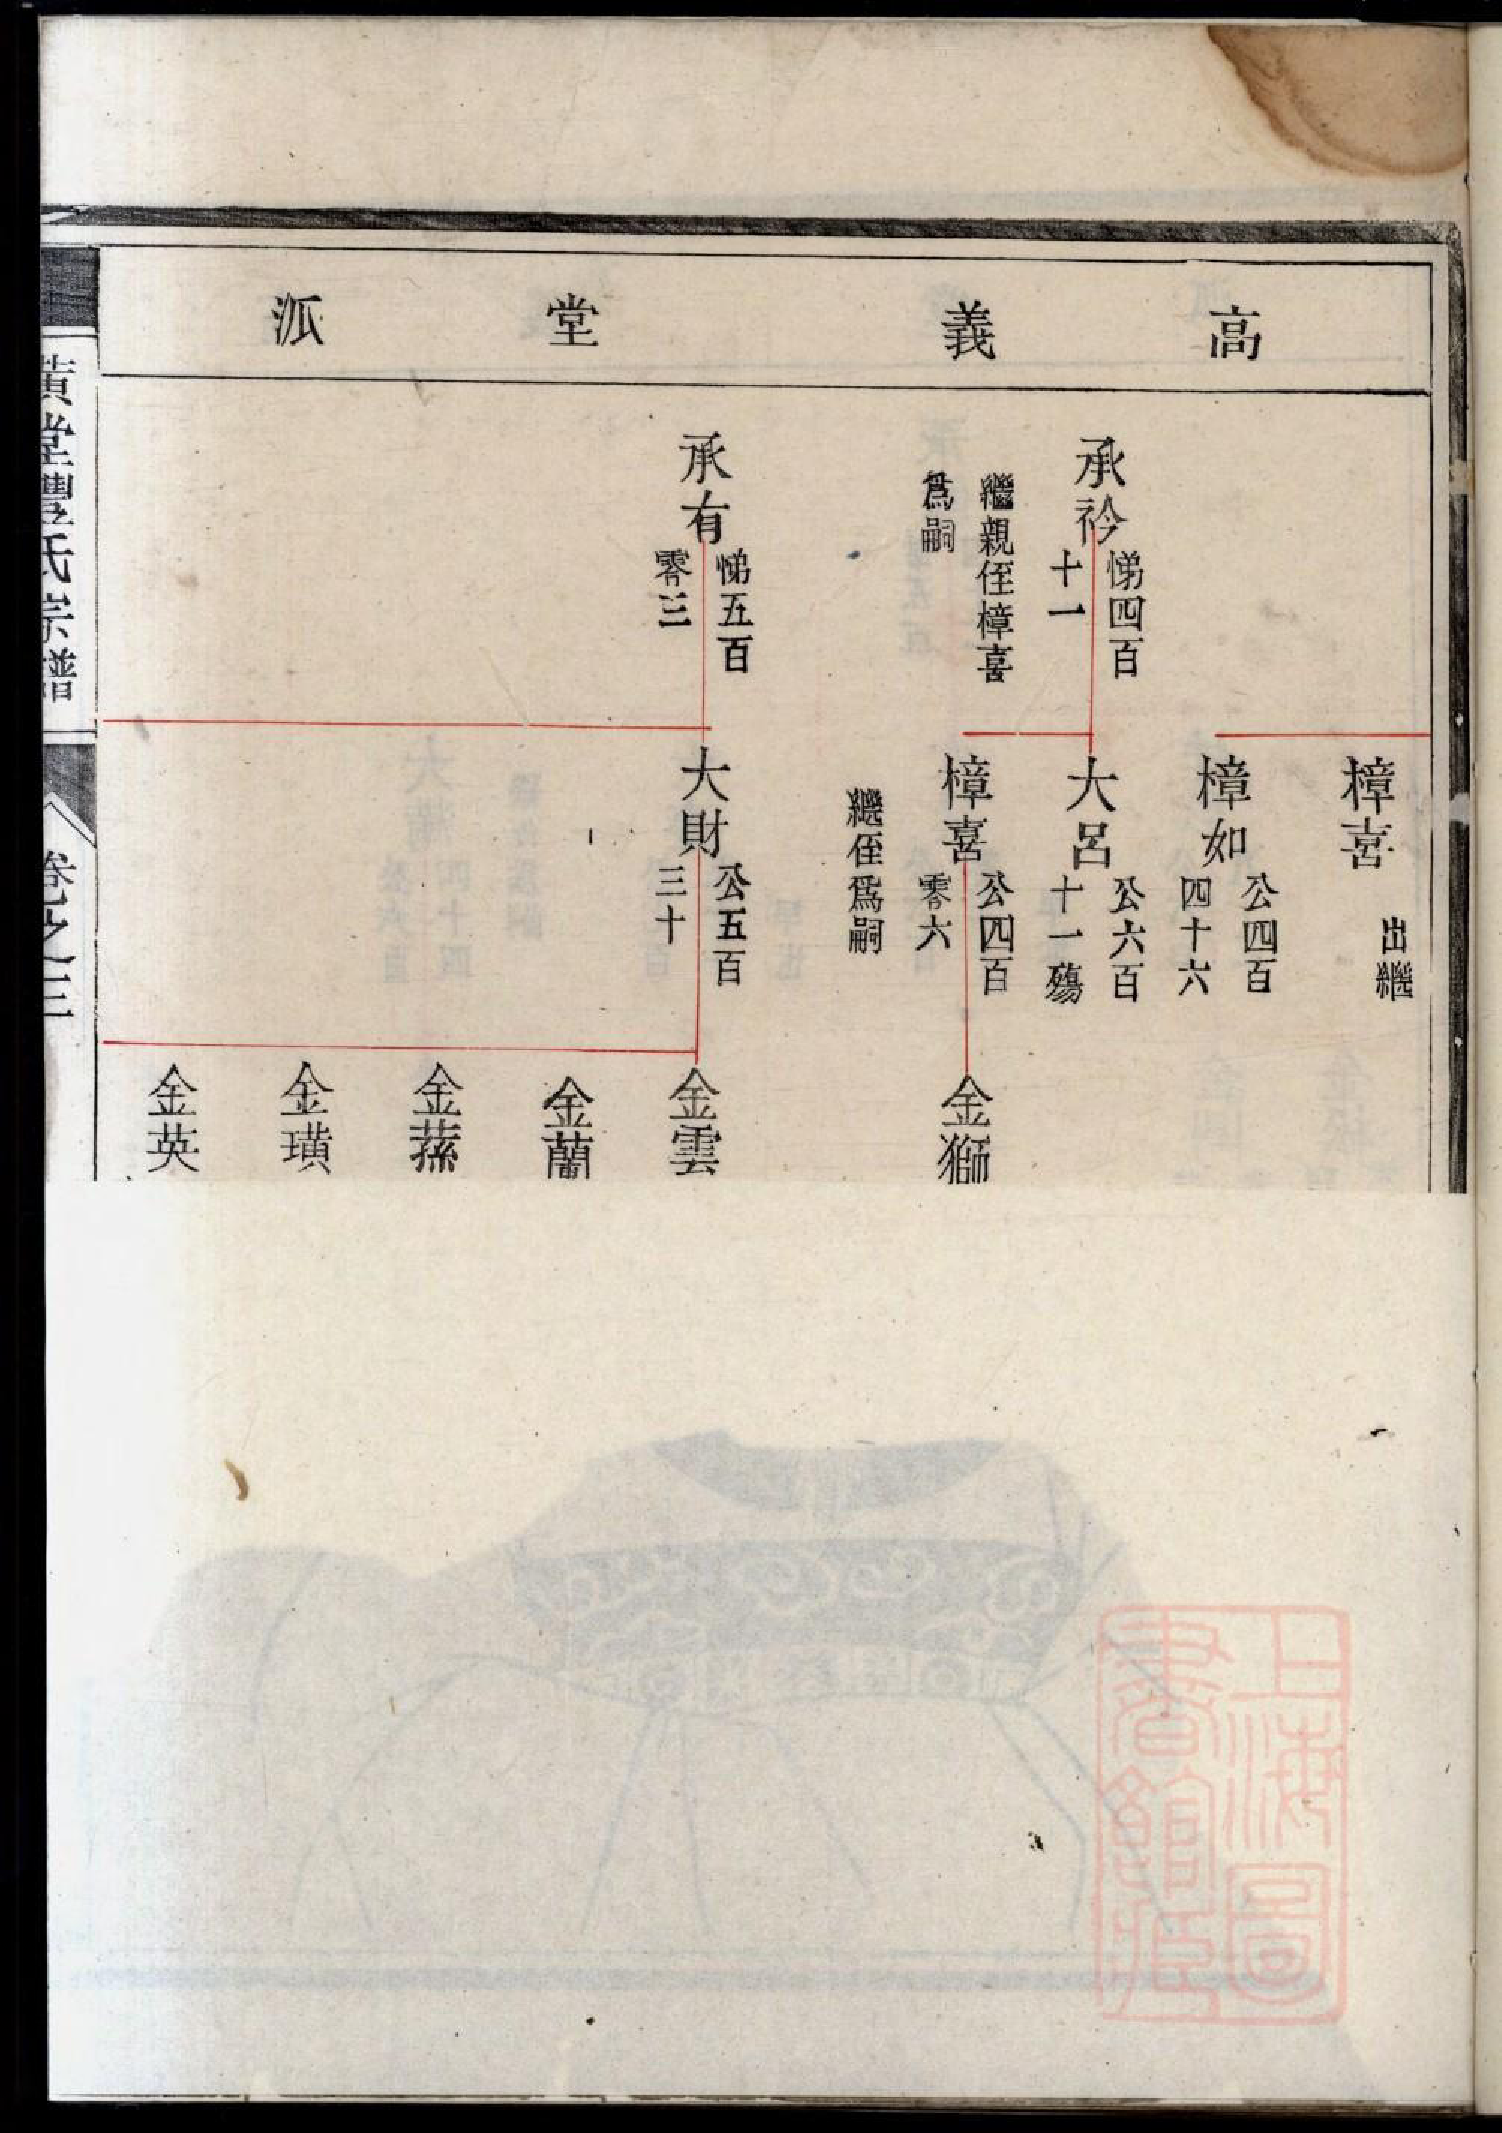 高義堂派
承衿
悌四百
十一
繼親侄樟喜
爲嗣
承有
悌五百
零三
樟喜
出繼
樟如
公四百
四十六
大呂
公六百
十一殤
樟喜
公四百
零六
繼侄爲嗣
大財
公五百
三十
金獅
金雲
金蘭
金蓀
金璜
金英
黃堂豐氏宗譜
卷之三
上海圖
書館藏